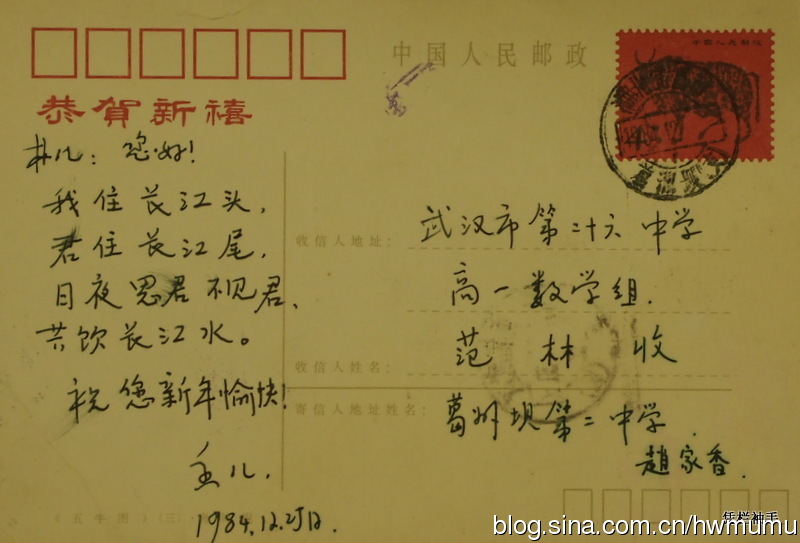 中国人民邮政
中国人民邮政
恭賀新禧
林儿：您好！
我住长江头，
君住长江尾，
日夜思君不见君、
共饮长江水。
祝您新年愉快！
1984.12.25日.
收信人地址：
武汉市第二十六中学
高一数学组.
收信人姓名：
范 林 收
寄信人地址姓名：
葛州坝第二中学.
趙家香.
《五牛图》（三）
凭栏袖手
blog.sina.com.cn/hwmumu